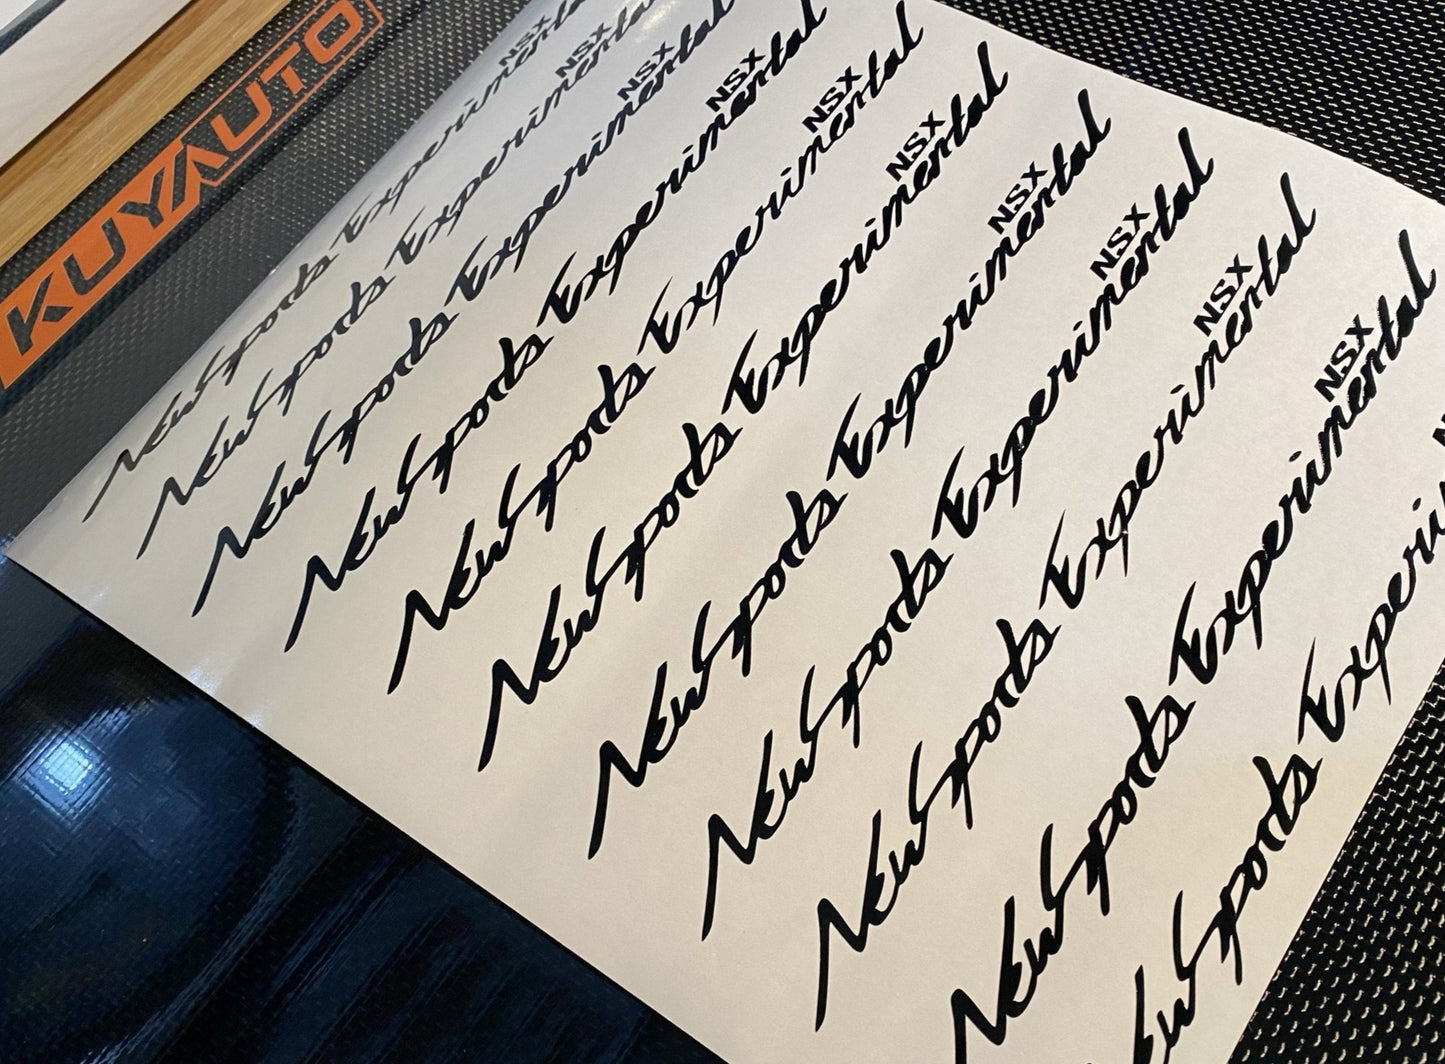 KUYAUTO
NSX
New Sports Experimental
NSX
New Sports Experimental
NSX
New Sports Experimental
NSX
New Sports Experimental
NSX
New Sports Experimental
NSX
New Sports Experimental
NSX
New Sports Experimental
NSX
New Sports Experimental
NSX
New Sports Experimental
NSX
New Sports Experimental
Sports